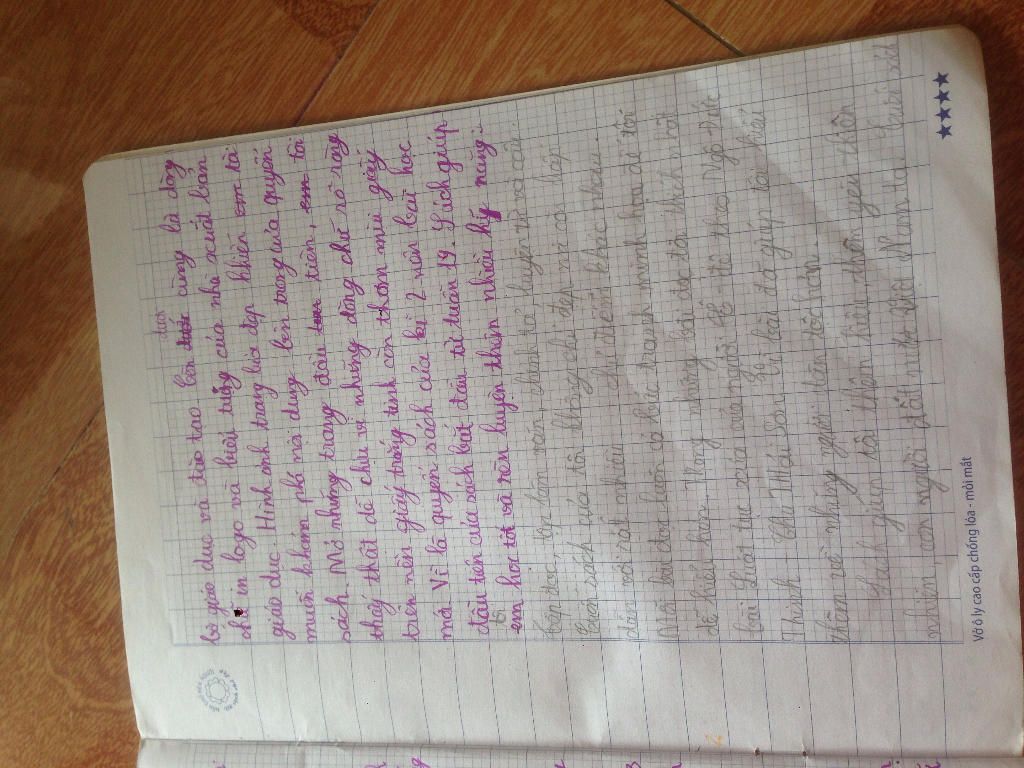 dưới
bộ giáo dục và đào tạo bên dưới cùng là dòng
chữ in logo và biểu tượng của nhà xuất bản
giáo dục. Hình ảnh trang bìa đẹp khiến em tôi
muốn khám phá nội dung bên trong của quyển
sách. Mở những trang đầu tiên, em tôi
thấy thật dễ chịu vì những dòng chữ rõ ràng
trên nền giấy trắng tinh còn thơm mùi giấy
mới. Vì là quyển sách của kì 2 nên bài học
đầu tiên của sách bắt đầu từ tuần 19. Sách giúp
tôi
em học tốt và rèn luyện thêm nhiều kỹ năng:
tập đọc, tập làm văn, luyện từ và câu.
Cuốn sách của tôi không chỉ đẹp mà còn hấp
dẫn với rất nhiều chủ điểm khác nhau.
Mỗi bài đọc luôn có bức tranh minh họa để tôi
dễ hiểu hơn. Trong những bài đọc tôi thích nhất
bài Luật tục xưa của người Ê-đê theo Ngô Đức
Thịnh - Chu Thái Sơn. Vì bài đó giúp tôi biết
thêm về những người dân tộc hơn.
Sách giúp tôi thân thiết, thêm yêu thiên
nhiên, con người, đất nước Việt Nam từ buổi sơ
Vở ô ly cao cấp chống lóa - mỏi mắt